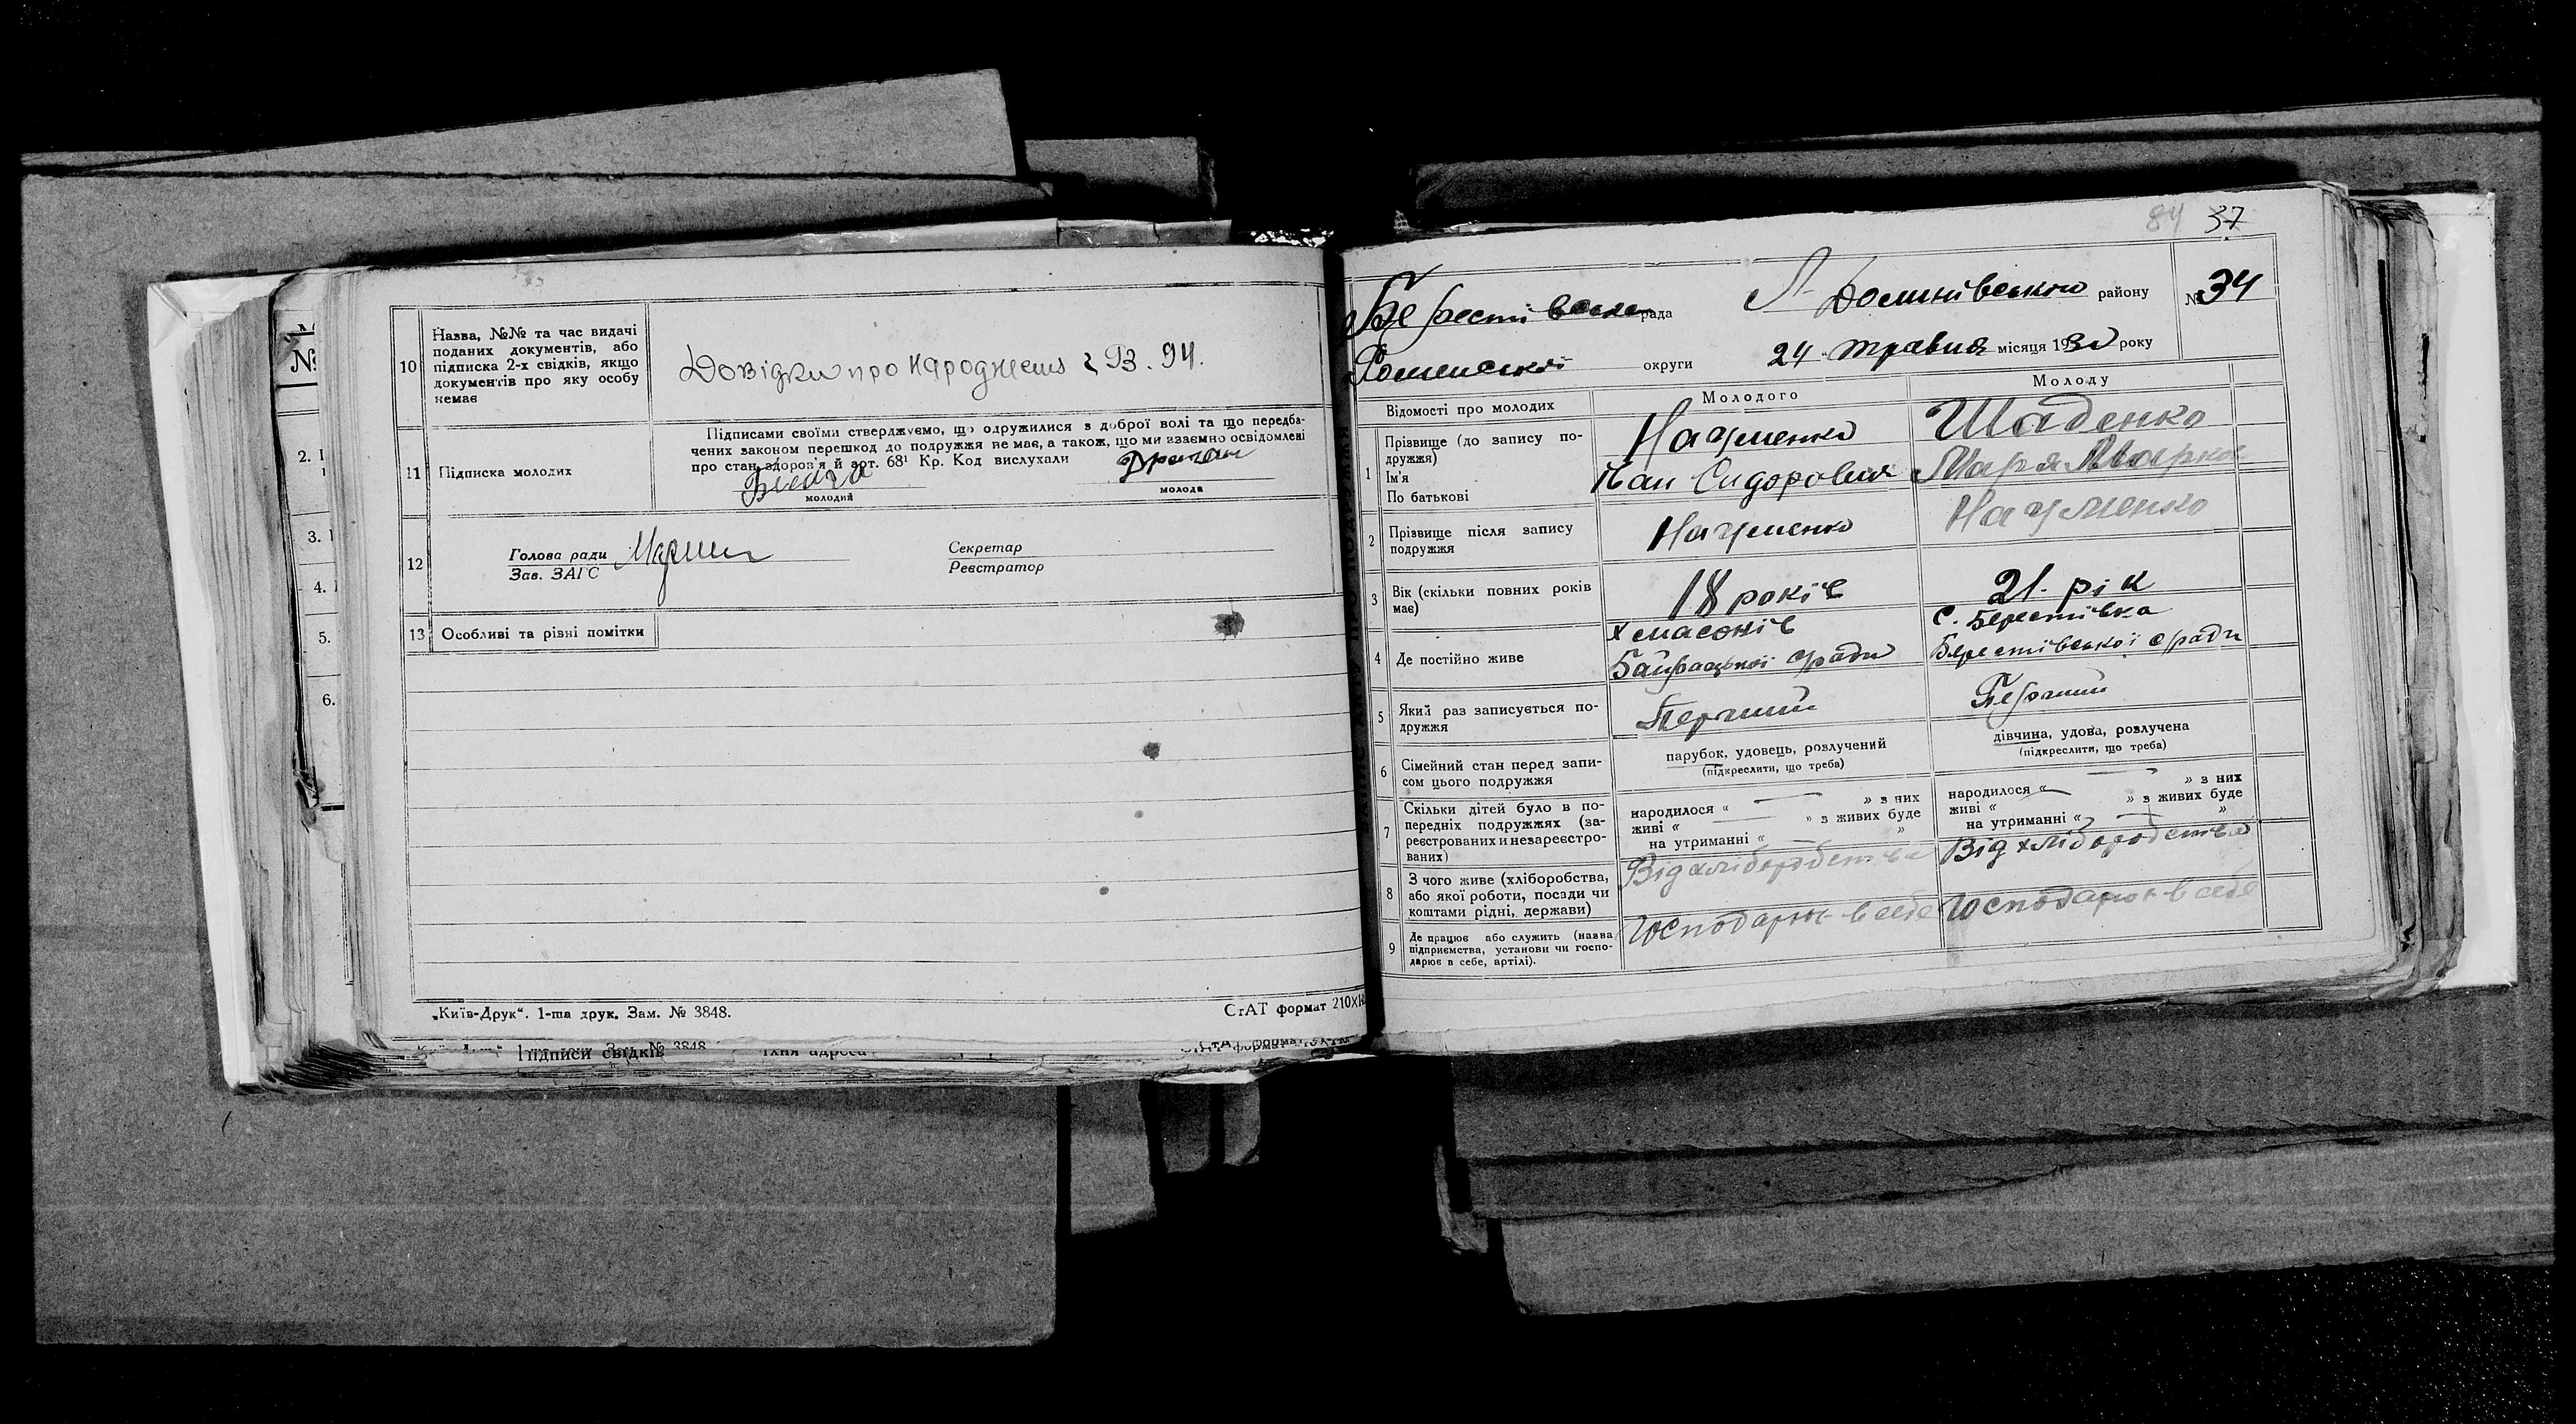 10
Назва, №№ та час видачі
поданих документів, або
підписка 2-х свідків, якщо
документів про яку особу
немає
Довідки про народження
11
Підписка молодих
Підписами своїми стверджуємо, що одружилися з доброї волі та що передба-
чених законом перешкод до подружжя не має, а також, що ми взаємно освідомлені
про стан здоров'я й арт. 68¹ Кр. Код вислухали
молодий
молода
12
Голова ради
Зав. ЗАГС
Секретар
Реєстратор
13
Особливі та різні помітки
„Київ-Друк“. 1-ша друк. Зам. № 3848.
СтАТ формат 210х
Підписи свідків
їхня адреса
№
2.
3.
4.
5.
6.
84 37
Берестівська рада
Л-Долинівського району
№ 34
Роменської округи
24 травня місяця 1930 року
Відомості про молодих
Молодого
Молоду
1
Прізвище (до запису по-
дружжя)
Ім'я
По батькові
Науменко
Сидорович
Шаденко
Марія Марков
2
Прізвище після запису
подружжя
Науменко
Науменко
3
Вік (скільки повних років
має)
18 років
21. рік
4
Де постійно живе
Байрацької с/ради
с. Берестівка
Берестівської с/ради
5
Який раз записується по-
дружжя
Перший
Перший
6
Сімейний стан перед запи-
сом цього подружжя
парубок, удовець, розлучений
(підкреслити, що треба)
дівчина, удова, розлучена
(підкреслити, що треба)
7
Скільки дітей було в по-
передніх подружжях (за-
реєстрованих и незареєстро-
ваних)
народилося « — » з них
живі « — » з живих буде
на утриманні « »
народилося « — » з них
живі « » з живих буде
на утриманні « — »
8
З чого живе (хліборобства,
або якої роботи, посади чи
коштами рідні, держави)
Від хліборобства
Від хліборобства
9
Де працює або служить (назва
підприємства, установи чи госпо-
дарює в себе, артілі).
Господарює в себе
Господарює в себе